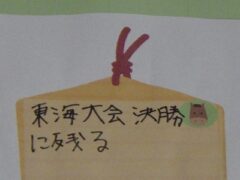 東海大会決勝
に残る